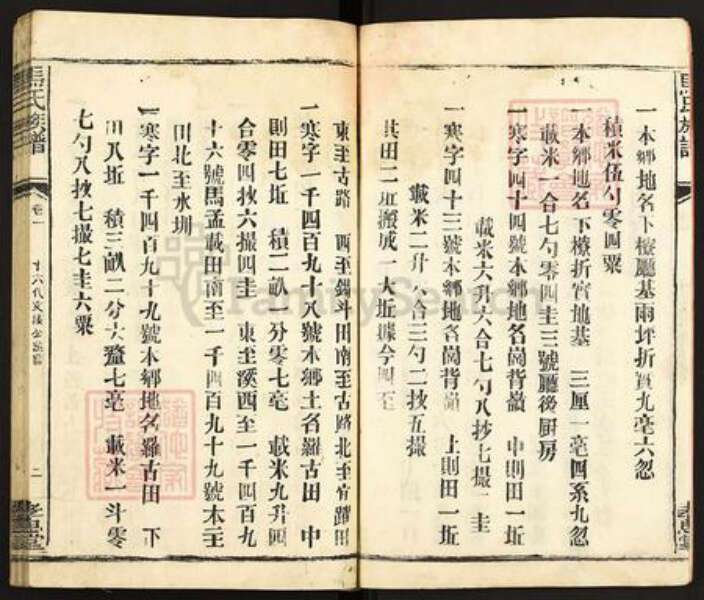 一本鄉地名下樑廳基兩坪折實九毫六忽
積米伍勺零四粟
一本鄉地名下樑折實地基 三厘一毫四系九忽
載米一合七勺零四圭三號廳後厨房
一寒字四十四號本鄉地名崗背嶺 中則田一坵
載米六升六合七勺八抄七撮一圭
一寒字四十三號本鄉地名崗背嶺 上則田一坵
載米二升八合三勺二抄五撮
其田二坵搬成一大坵據今四至
東至古路 西至 斗田南至古路北至 田
一寒字一千四百九十八號本鄉土名羅古田 中
則田七坵 積二畝一分零七毫 載米九升四
合零四抄六撮四圭 東至溪西至一千四百九
十六號馬孟載田南至一千四百九十九號本主
田北至水圳
一寒字一千四百九十九號本鄉地名羅古田 下
田八坵 積三畝二分六釐七毫 載米一斗零
七勺八抄七撮七圭六粟
馬氏族譜
卷一
二
孝思堂